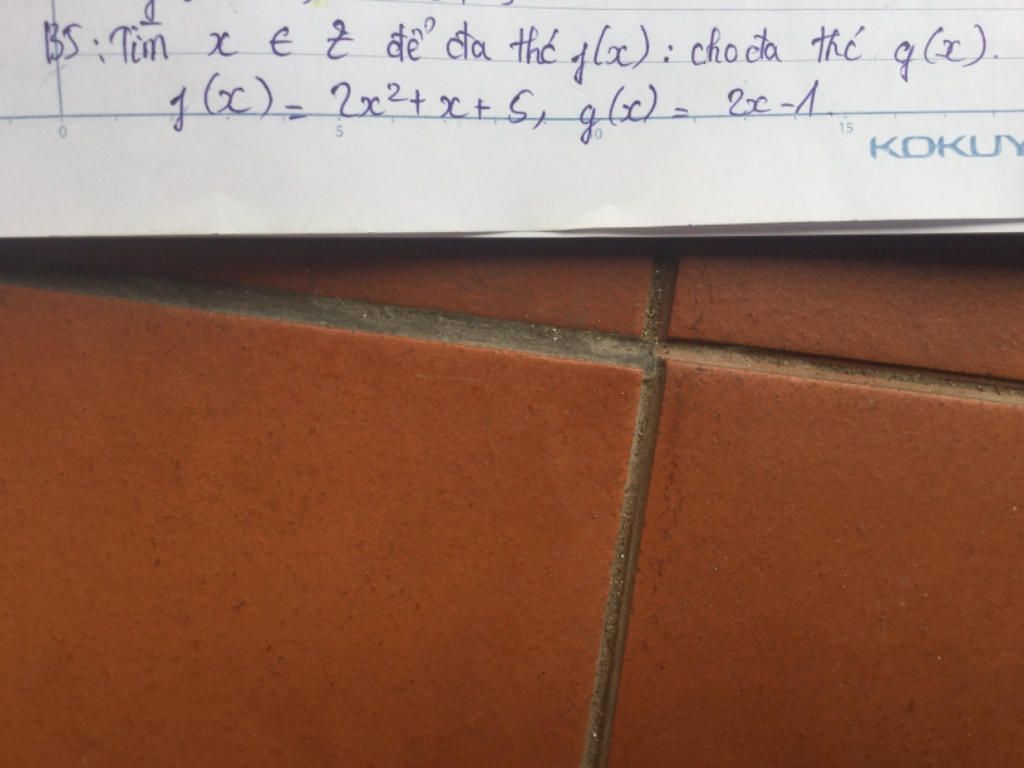 B5: Tìm x ∈ Z để đa thć f(x) : cho đa thć g(x).
f(x) = 2x² + x + 5, g(x) = 2x - 1.
0 5 10 15
KOKUY